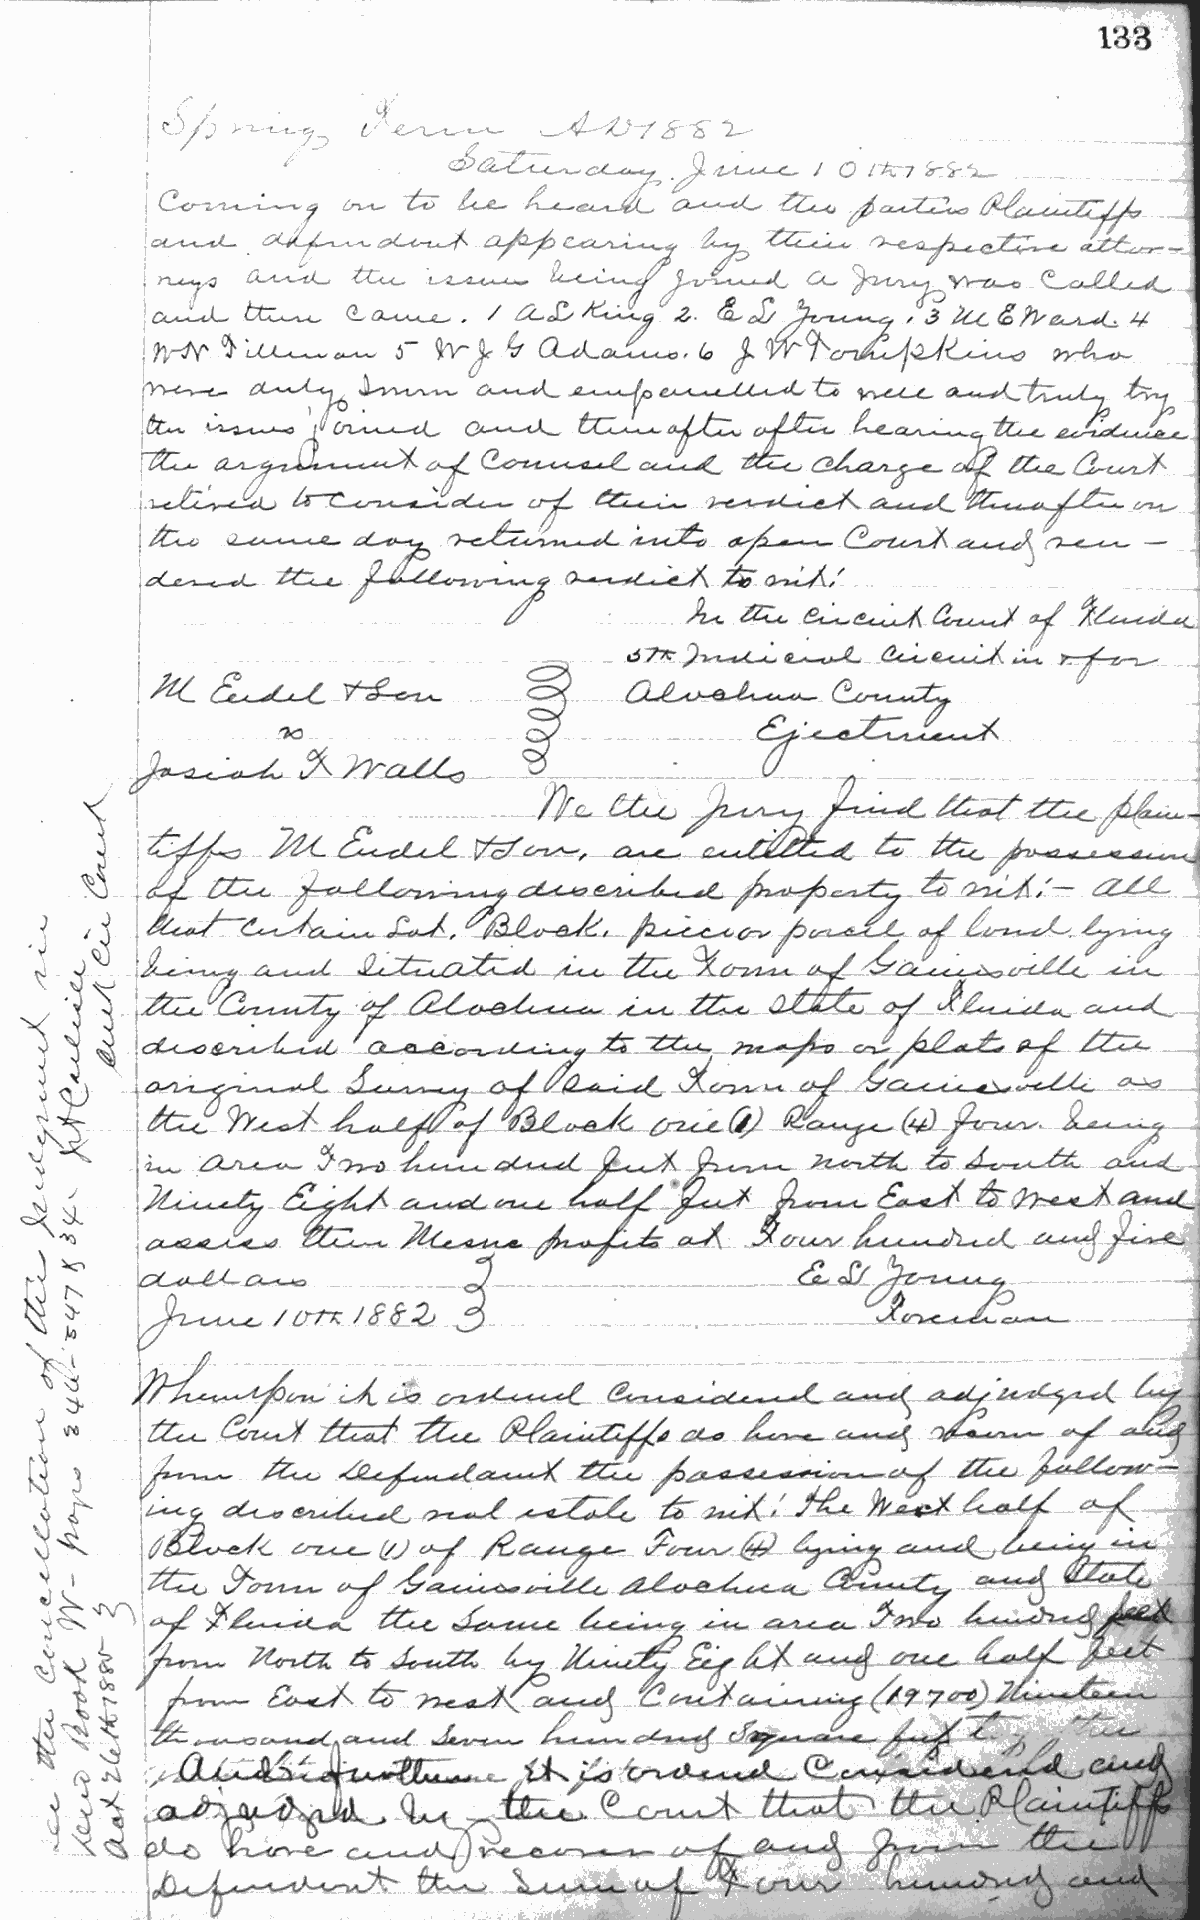 133
Spring Term AD 1882
Saturday June 10th 1882
Coming on to be heard and the parties Plaintiffs
and defendant appearing by their respective attor-
neys and the issues being joined a Jury was Called
and there Came. 1 A L King 2. E L Young. 3 M E Ward. 4
W N Tillman 5 W J G Adams. 6 J W Tompkins who
were duly Sworn and empanelled to well and truly try
the issues joined and thereafter after hearing the evidence
the argument of Counsel and the charge of the Court
retired to consider of their verdict and thereafter on
the same day returned into open Court and ren-
dered the following verdict to wit:
In the Circuit Court of Florida
5th Judicial Circuit in & for
M Endel & Son
Alachua County
vs
Ejectment
Josiah T Walls
We the Jury find that the plain-
tiffs M Endel & Son, are entitled to the possession
of the following described property to wit:- All
that Certain Lot, Block, piece or parcel of land lying
being and Situated in the Town of Gainesville in
the County of Alachua in the State of Florida and
described according to the maps or plats of the
original Survey of Said Town of Gainesville as
the West half of Block one (1) Range (4) four. being
in area Two hundred feet from north to South and
Ninety Eight and one half feet from East to West and
assess their Mesne profits at Four hundred and five
dollars
E L Young
June 10th 1882
Foreman
Whereupon it is ordered Considered and adjudged by
the Court that the Plaintiffs do have and recover of and
from the Defendant the possession of the follow-
ing described real estate to wit: The West half of
Block one (1) of Range Four (4) lying and being in
the Town of Gainesville Alachua County and State
of Florida the Same being in area Two hundred feet
from North to South by Ninety Eight and one half feet
from East to west and Containing (19700) Nineteen
thousand and Seven hundred Square feet the
And further It is ordered Considered and
adjudged by the Court that the Plaintiffs
do have and recover of and from the
Defendant the Sum of Four hundred and
See the Concellation of the Judgment in
Deed Book W- pages 346-347 & 348
Oct 26th 1885
Clerk Cir Court